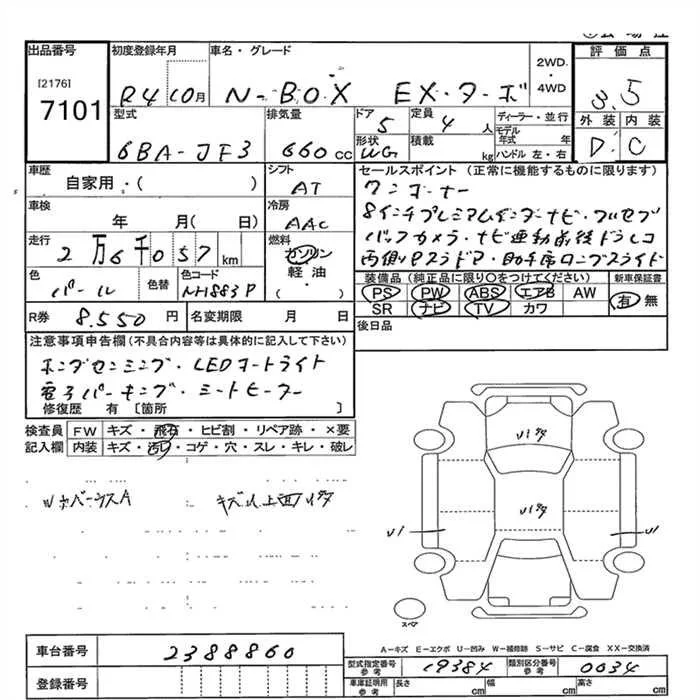 出品番号
[2176]
7101
初度登録年月
R4 10月
車名・グレード
N-BOX EX・ターボ
2WD
・
4WD
評価点
3.5
外装 内装
D C
型式
6BA-JF3
排気量
660 cc
ドア
5
定員
4 人
形状
WG
積載
kg
ディーラー・並行
モデル年式 年
ハンドル 左・右
車歴
自家用・( )
シフト
AT
セールスポイント (正常に機能するものに限ります)
ワンオーナー
8インチプレミアムインターナビ・フルセグ
バックカメラ・ナビ連動前後ドラレコ
両側Pスラドア・助手席ロングスライド
車検
年 月(日)
冷房
AAC
走行
2万6千057 km
燃料
ガソリン
軽油
・( )
色
パール
色替
色コード
NH883P
装備品 (純正品に限り○をつけてください)
PS PW ABS エアB AW
SR ナビ TV カワ
新車保証書
有 無
R券 8.550 円
名変期限 月 日
後日品
注意事項申告欄 (不具合内容等は具体的に記入して下さい)
ホンダセンシング・LEDオートライト
電子パーキング・シートヒーター
修復歴 有 [箇所 ]
検査員
記入欄
FW キズ・飛石・ヒビ割・リペア跡・×要
内装 キズ・汚れ・コゲ・穴・スレ・キレ・破レ
U1
U1
スペア
A-キズ E-エクボ U-凹み W-補修跡 S-サビ C-腐食 XX-交換済
車台番号 2388860
登録番号
型式指定番号
参考
19384
類別区分番号
参考
0034
車庫証明用
参考
長さ cm 幅 cm 高さ cm